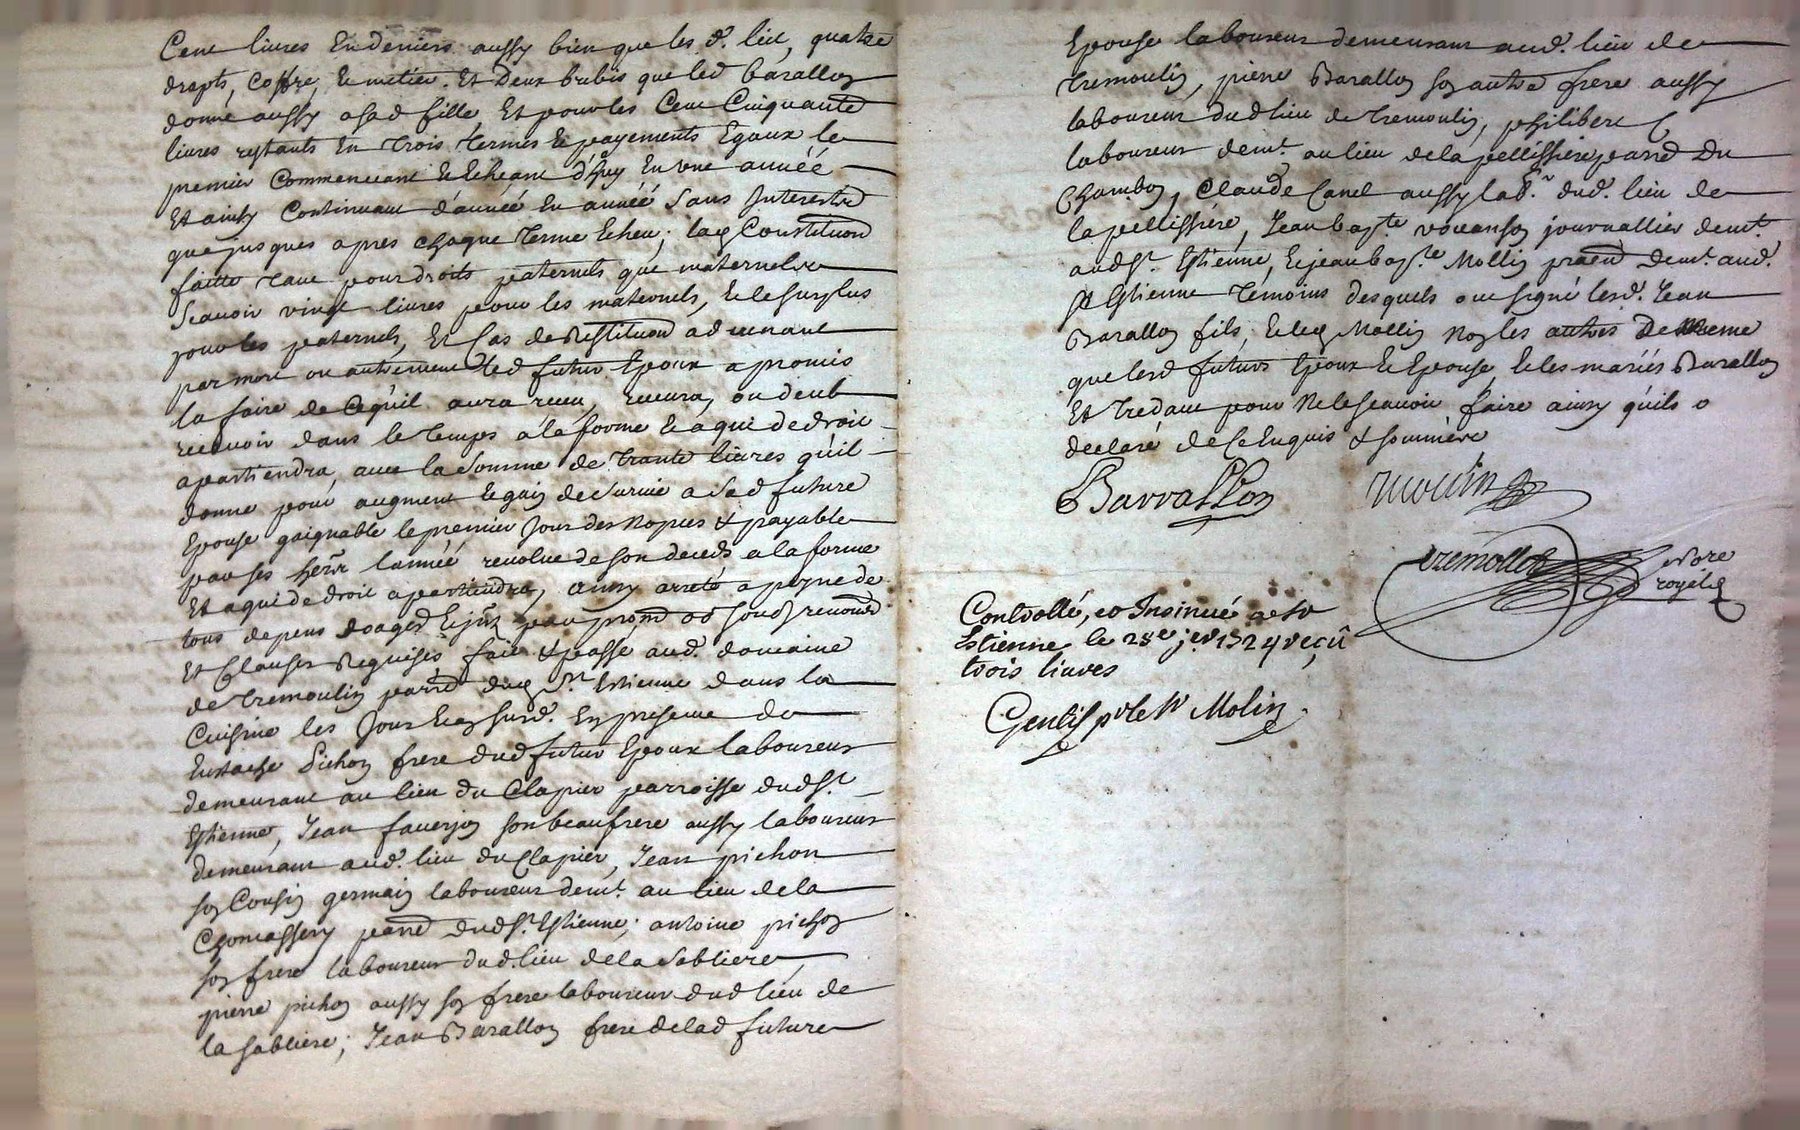 Cent livres En deniers aussy bien que les d. lict, quatre
drapts, Coffre, le metier. Et Deux brebis que led barallon
donne aussy a sad fille Et pour les Cent Cinquante
livres restants En trois termes & payements Egaux le
premier Commencant & Echeant d'huy En une année
Et ainsy Continuant d'année En année Sans Interestz
que jusques apres chaque terme Echeu; laq Constituon
faitte tant pour droits paternels que maternels
Scavoir vingt livres pour les maternels, & le surplus
pour les paternels, Et Cas de Restituon advenant
par mort ou autrement led futur Epoux a promis
la faire de Ce quil aura receu, recevra, ou deub
recevoir dans le temps a la forme & a qui de droit
apartiendra, avec la Somme de trante livres quil
donne pour augment & gain de survie a sad future
Epouse gaignable le premier Jour des nopces & payable
par ses herrs lannée revolue de son deceds a la forme
Et a qui de droit apartiendra, ainsy arreté a peyne de
tous depens
Et Clauses Requises fait & passé aud. domaine
de tremoulin parrd duq St Estienne dans la
Cuisine les Jour & an susd. En presence de
Eustache Pichon frere dud futur Epoux laboureur
demeurant au lieu du Clapier parroisse dud St.
Estienne, Jean faverjon son beaufrere aussy laboureur
demeurant aud. lieu du Clapier, Jean pichon
son Cousin germain laboureur demt. au lieu de la
Chomassery parrd dud St. Estienne; antoine pichon
son frere laboureur dud. lieu de la Sabliere,
pierre pichon aussy son frere laboureur dud lieu de
la Sabliere; Jean Barallon frere de lad future
Epouse laboureur demeurant aud. lieu de
tremoulin, pierre Barallon son autre frere aussy
laboureur dud lieu de tremoulin, philibert
laboureur demt. au lieu de la pellissiere parrd Du
Chambon, Claude Canel aussy labr. dud. lieu de
la pellissiére, Jean bapte journallier demt.
aud St. Estienne, & jean bapte Mollin demt. aud.
St Estienne témoins desquels ont signé lesd. Jean
Barallon fils, & leq Mollin non les autres De meme
que lesd futurs Epoux & Epouse, & les mariés Barallon
Et tredant pour ne le scavoir faire ainsy quils o
declaré de Ce Enquis & sommére
Barrallon mollin
tremollet nore
royal
Controllé, et Insinué a St
Estienne le 28e jer 1724 reçû
trois livres
Gentif pr le Sr Molin